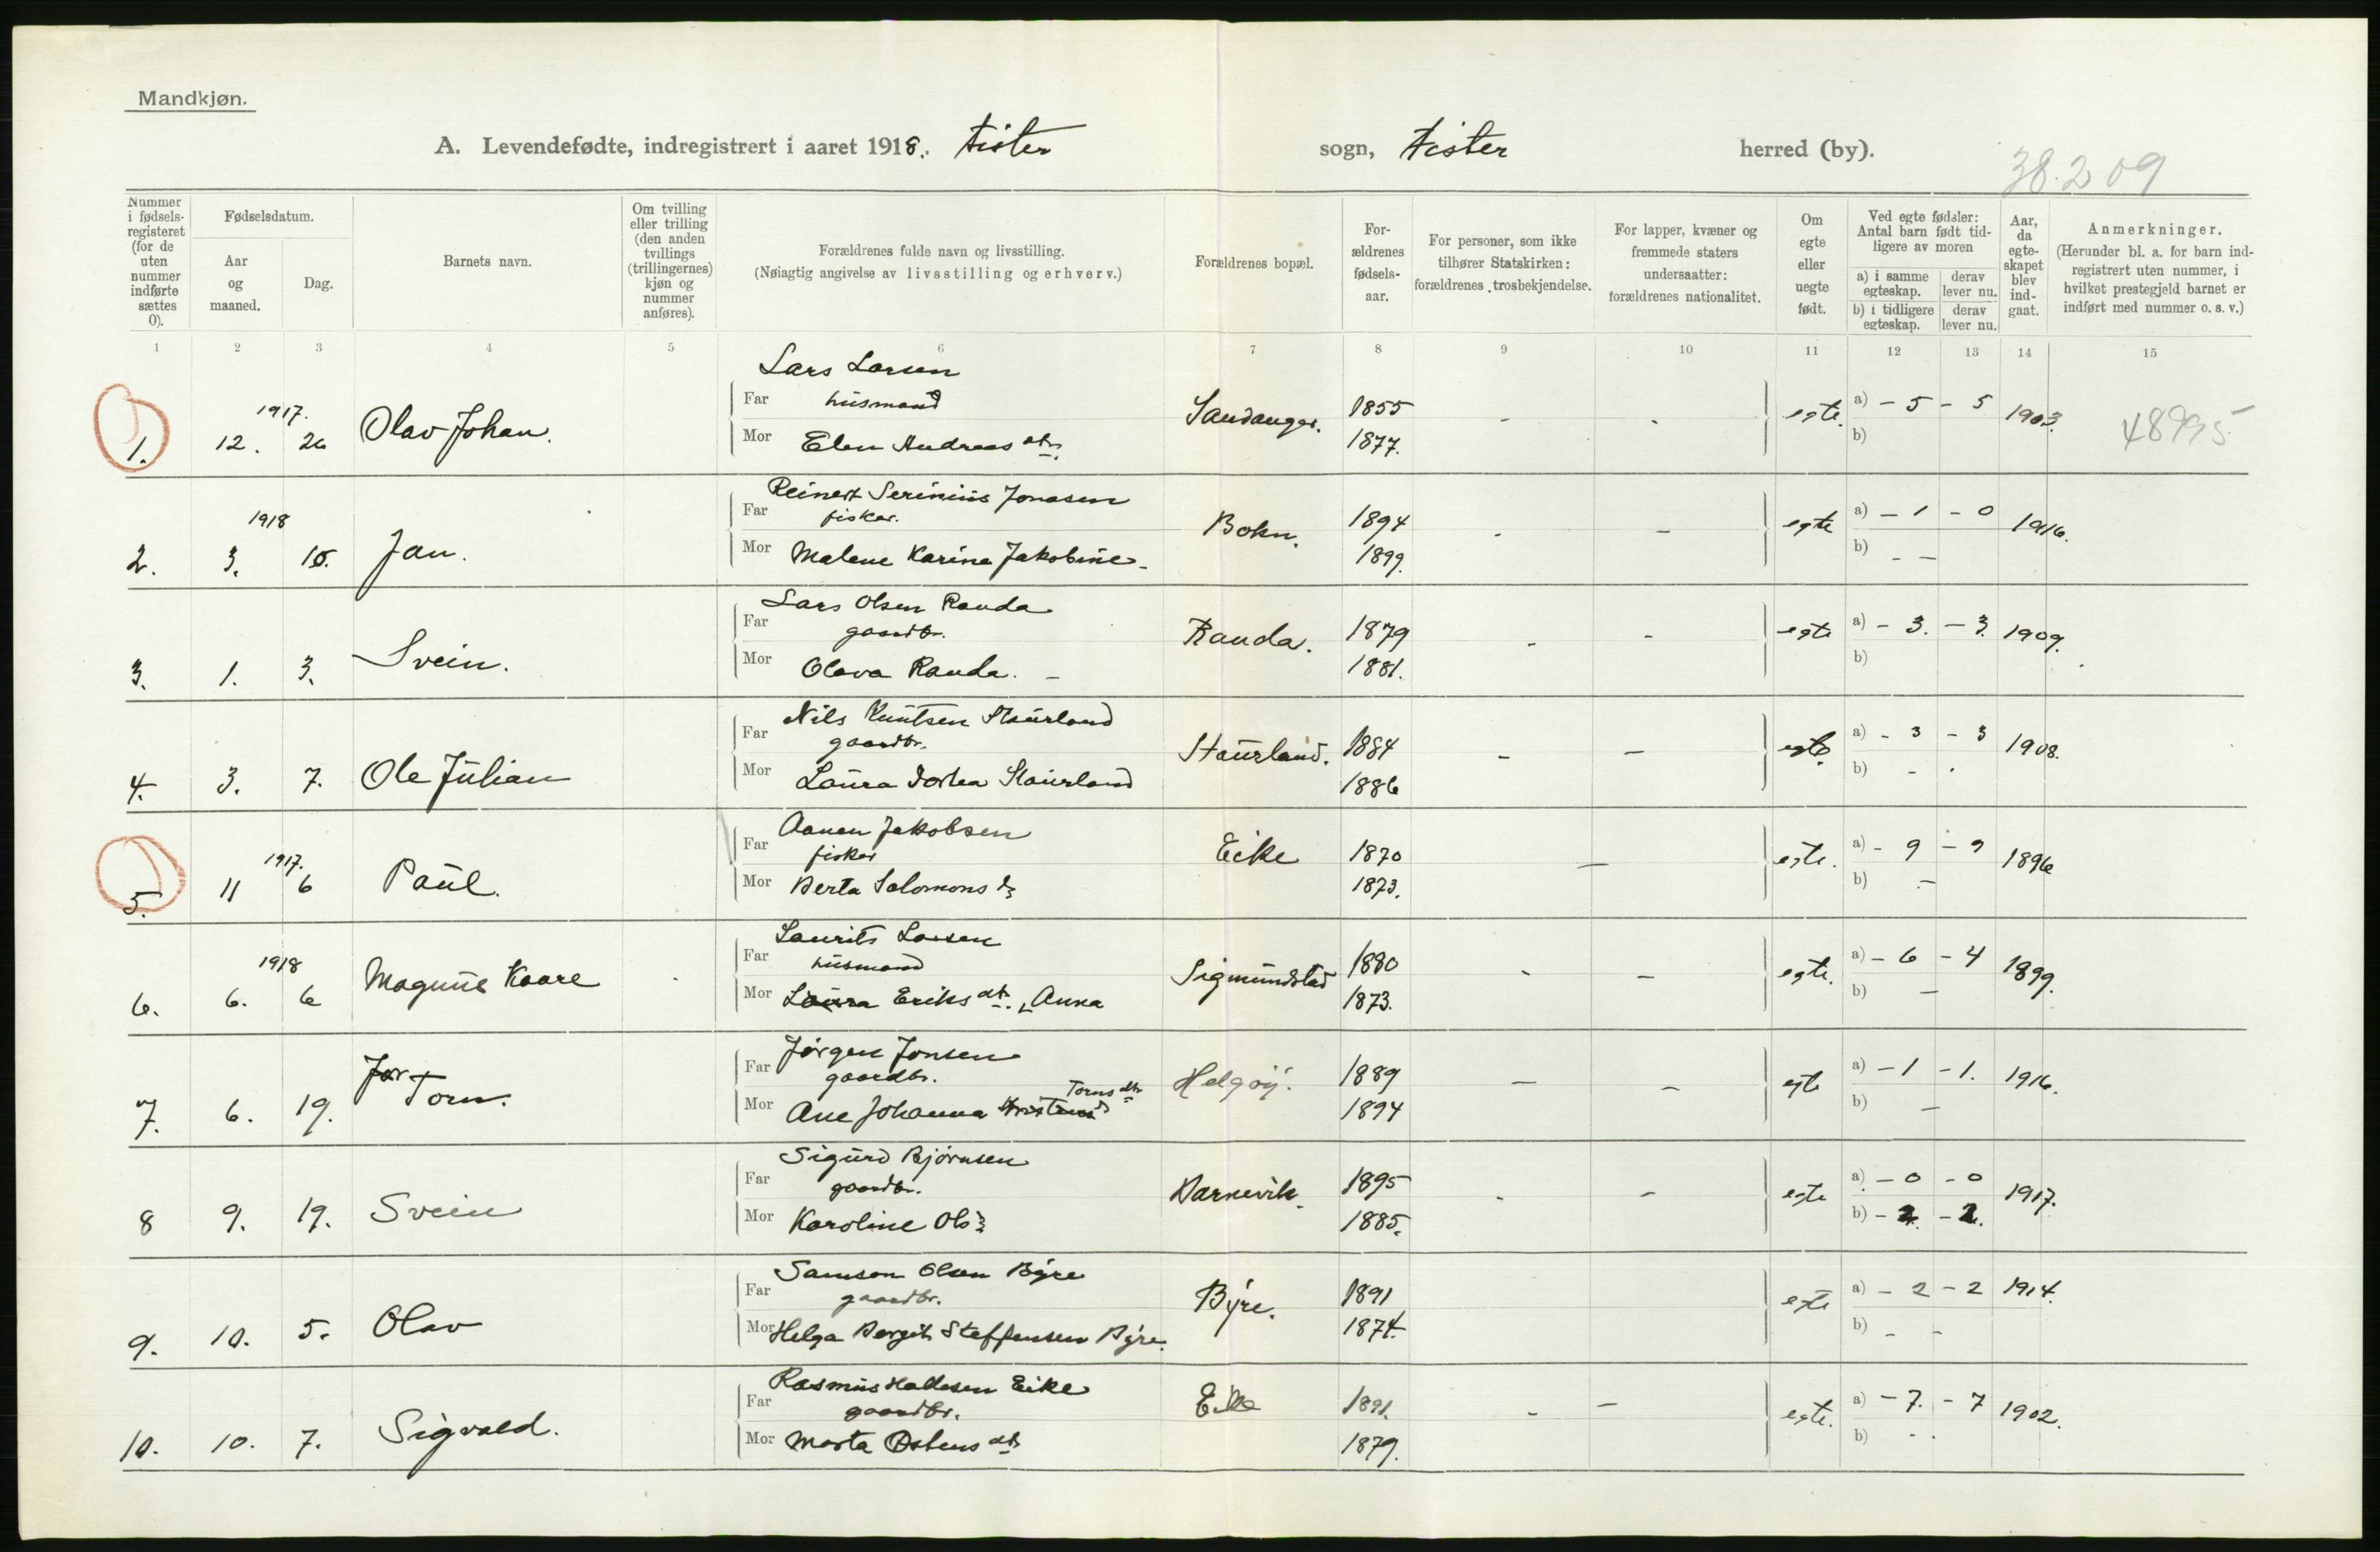 Mandkjøn.
A. Levendefødte, indregistrert i aaret 1918. Fister sogn, Fister herred (by).
38.2 09
Nummer i fødsels-registeret (for de uten nummer indførte sættes 0).
Fødselsdatum.
Aar og maaned.
Dag.
Barnets navn.
Om tvilling eller trilling (den anden tvillings (trillingernes) kjøn og nummer anføres).
Forældrenes fulde navn og livsstilling.
(Nøiagtig angivelse av livsstilling og erhverv.)
Forældrenes bopæl.
For-ældrenes fødsels-aar.
For personer, som ikke tilhører Statskirken: forældrenes trosbekjendelse.
For lapper, kvæner og fremmede staters undersaatter: forældrenes nationalitet.
Om egte eller uegte født.
Ved egte fødsler: Antal barn født tid-ligere av moren
a) i samme egteskap. derav lever nu.
b) i tidligere egteskap. derav lever nu.
Aar, da egte-skapet blev ind-gaat.
Anmerkninger.
(Herunder bl. a. for barn ind-registrert uten nummer, i hvilket prestegjeld barnet er indført med nummer o. s. v.)
1 2 3 4 5 6 7 8 9 10 11 12 13 14 15
Lars Larsen
1917. Far husmand 1855 a) - 5 - 5
1. 12. 26 Olav Johan. Sandanger. - - egte. 1903. 48995
Mor Elen Andreas dtr. 1877. b)
Reinert Serinius Jonasen
1918 Far fisker. 1894 a) - 1 - 0
2. 3. 15. Jan. Bokn. - - egte 1916.
Mor Malene Karine Jakobine - 1899. b) - -
Lars Olsen Randa
Far gaardbr. 1879 a) - 3. - 3.
3. 1. 3. Svein. Randa. - - egte 1909.
Mor Olava Randa. - 1881. b)
Nils Knutsen Staurland
Far gaardbr. 1884 a) - 3 - 3
4. 3. 7. Ole Julian Staurland. - - egte. 1908.
Mor Laura Dortea Staurland 1886 b) - .
Aanen Jakobsen
1917. Far fisker 1870 a) - 9 - 9
5. 11 6 Paul. Eike - egte. 1896
Mor Berta Salomons d. 1873. b) -
Laurits Larsen
1918 Far husmand 1880 a) - 6 - 4
6. 6. 6 Magnus Kaare Sigmundstad - - egte. 1899.
Mor Laura Eriks dtr. Anna 1873. b) -
Jørgen Jonsen
Far gaardbr. 1889 a) - 1 - 1.
7. 6. 19. Torn. Helgøy. - - egte 1916.
Torns dtr.
Mor Ane Johanna 1894 b) -
Sigurd Bjørnsen
Far gaardbr. 1895 a) - 0 - 0
8 9. 19. Svein Barkevik. - - egte 1917.
Mor Karoline Ols d. 1885. b) - 2. - 2.
Samson Olsen Byre
Far gaardbr. 1891 a) - 2 - 2
9. 10. 5. Olav Byre. egte 1914.
Mor Helga Bergit Steffensen Byre. 1874. b) - -
Rasmus Hallesen Eike
Far gaardbr. 1891. a) - 7. - 7
10. 10. 7. Sigvald. Eike - - egte. 1902.
Mor Marta Ostens dtr 1879. b) - .